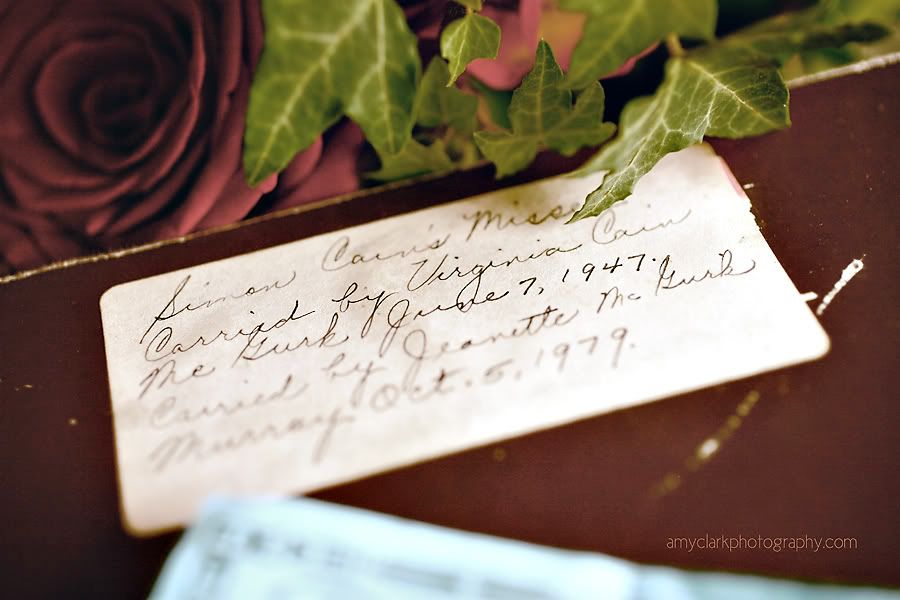 Simon Cain's
Carried by Virginia Cain
Mc Gurk June 7, 1947.
Carried by Jeanette Mc Gurk
Murray Oct. 5, 1979.
amyclarkphotography.com